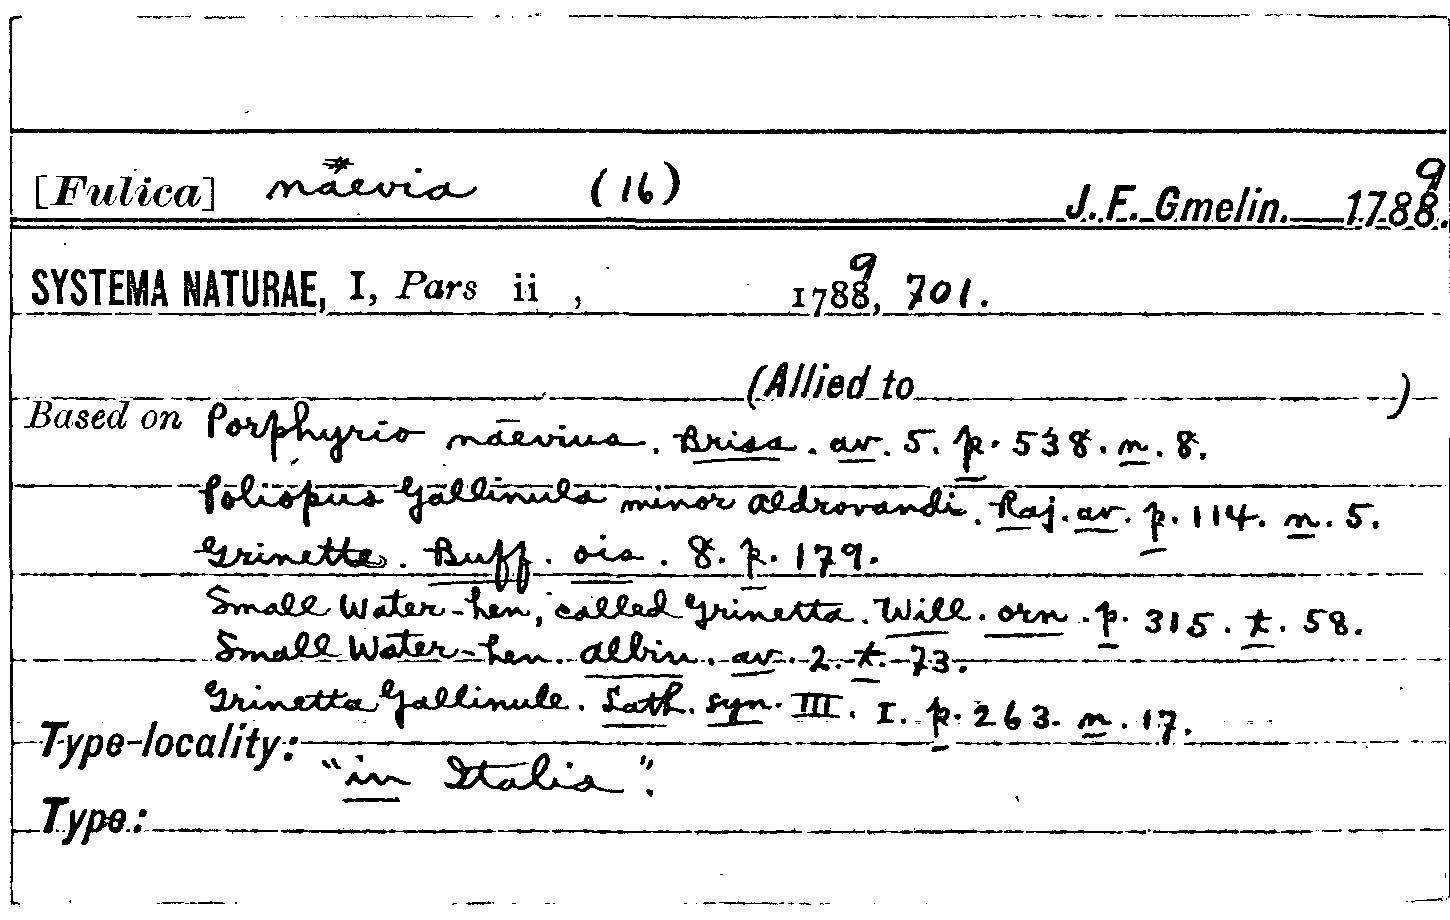 [Fulica] naevia (16) J. F. Gmelin. 17889.
SYSTEMA NATURAE, I, Pars ii , 17889, 701.
(Allied to )
Based on Porphyrio naevius. Briss. av. 5. p. 538. n. 8.
Poliopus Gallinula minor Aldrovandi. Raj. av. p. 114. n. 5.
Grinette. Buff. ois. 8. p. 179.
Small Water-hen, called Grinetta. Will. orn. p. 315. t. 58.
Small Water-hen. Albin. av. 2. t. 73.
Grinetta Gallinule. Lath. syn. III. I. p. 263. n. 17.
Type-locality: "in Italia".
Type: